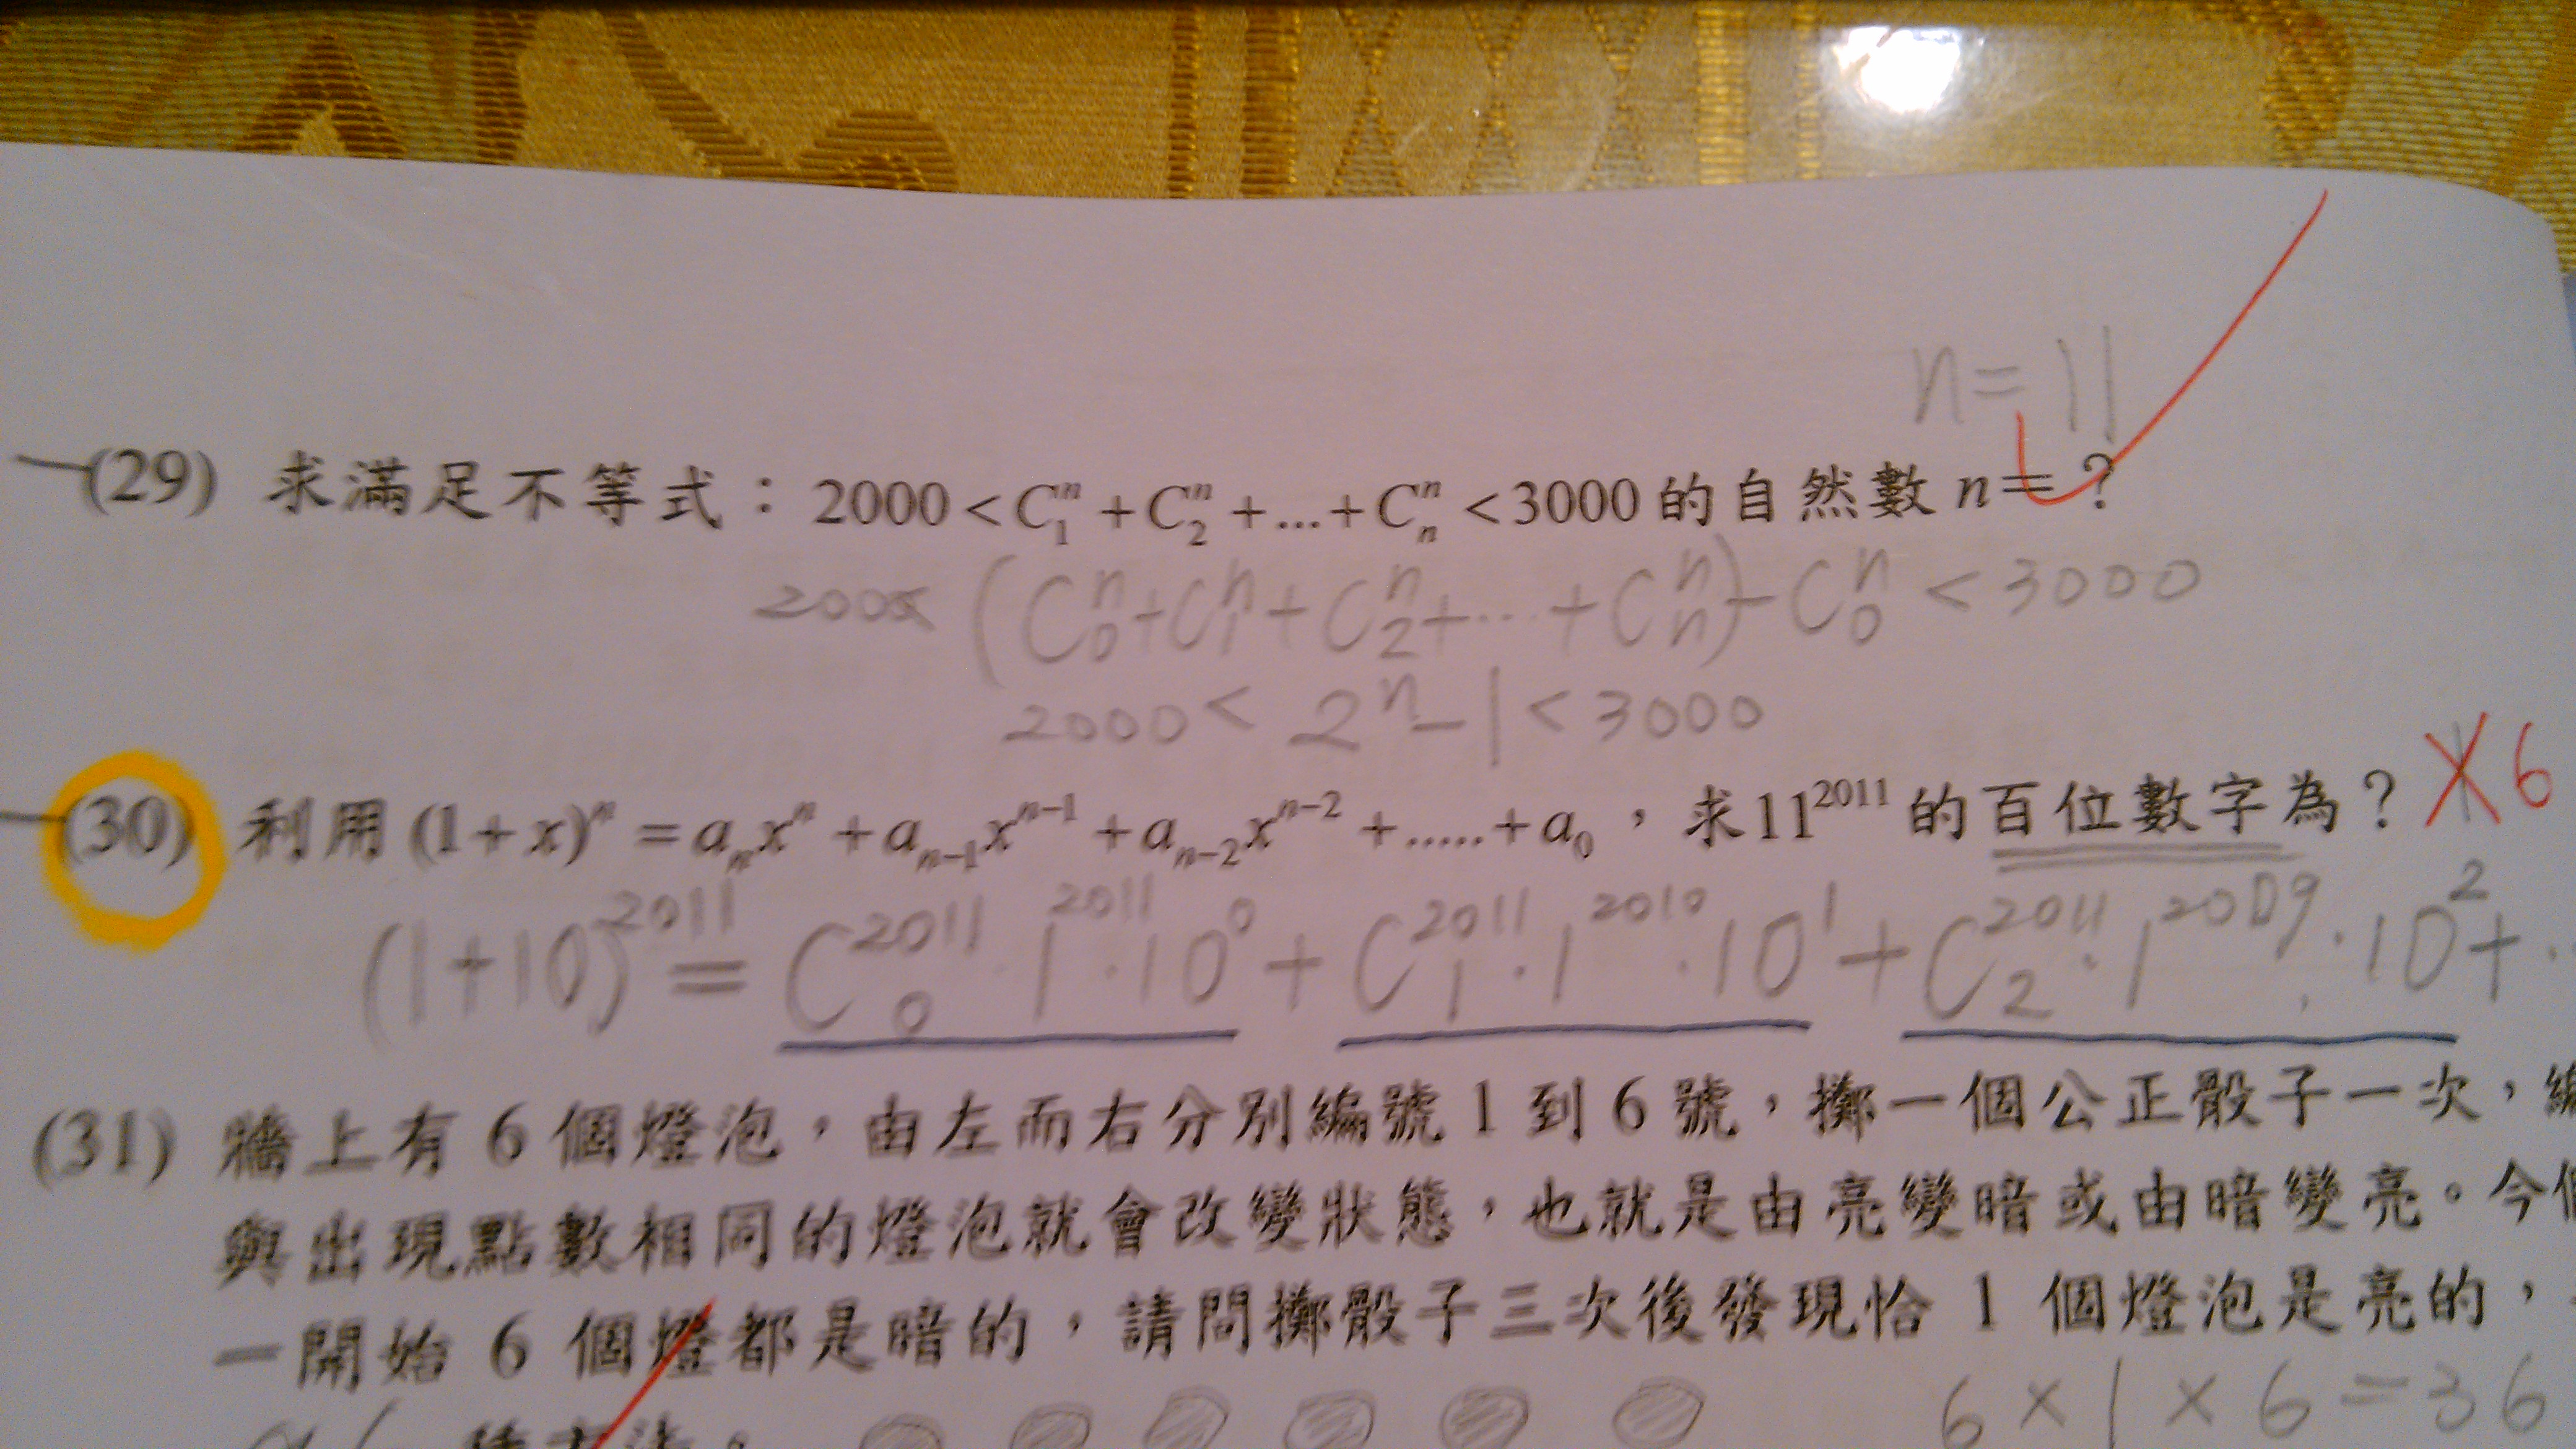 n=11
(29) 求滿足不等式：2000<C₁ⁿ+C₂ⁿ+...+Cₙⁿ<3000的自然數n=?
2000< (C₀ⁿ+C₁ⁿ+C₂ⁿ+...+Cₙⁿ)-C₀ⁿ<3000
2000<2ⁿ-1<3000
(30) 利用(1+x)ⁿ=aₙxⁿ+aₙ₋₁xⁿ⁻¹+aₙ₋₂xⁿ⁻²+.....+a₀，求11²⁰¹¹的百位數字為? 6
(1+10)²⁰¹¹=C₀²⁰¹¹1²⁰¹¹·10⁰+C₁²⁰¹¹·1²⁰¹⁰·10¹+C₂²⁰¹¹·1²⁰⁰⁹·10²+
(31) 牆上有6個燈泡，由左而右分別編號1到6號，擲一個公正骰子一次，編
與出現點數相同的燈泡就會改變狀態，也就是由亮變暗或由暗變亮。今
一開始6個燈都是暗的，請問擲骰子三次後發現恰1個燈泡是亮的，
6×1×6=36